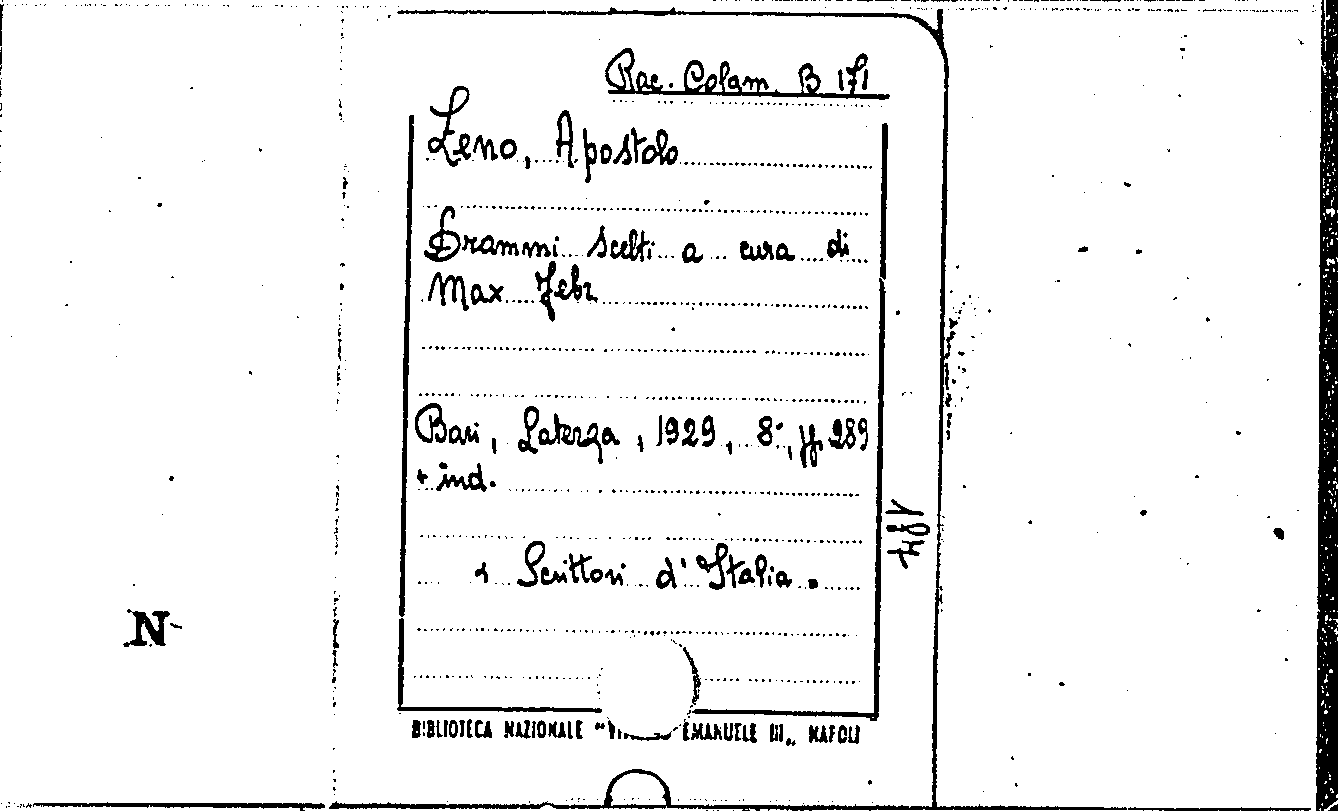 Rac. Colam. B 171
Zeno, Apostolo
Drammi scelti a cura di
Max Fehr
Bari, Laterza, 1929, 8°, pp. 289
+ ind.
« Scrittori d'Italia »
N
BIBLIOTECA NAZIONALE "VI EMANUELE III„ NAPOLI